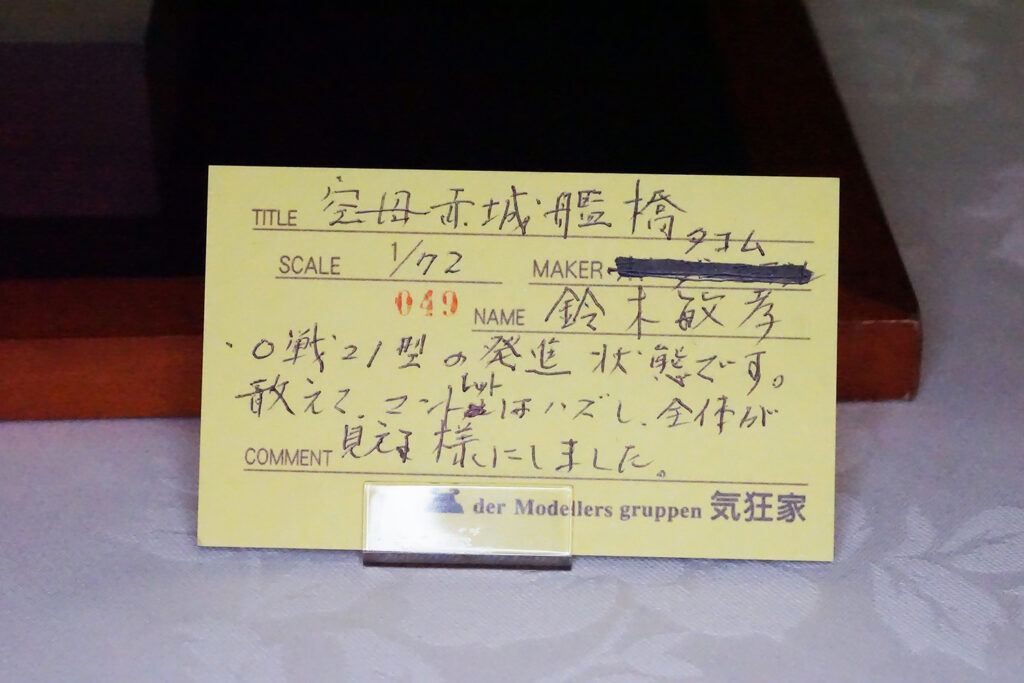 TITLE 空母赤城艦橋
SCALE 1/72 MAKER タコム
049 NAME 鈴木敏孝
・0戦21型の発進状態です。
敢えて、マントレットはハズし、全体が
COMMENT 見える様にしました。
der Modellers gruppen 気狂家